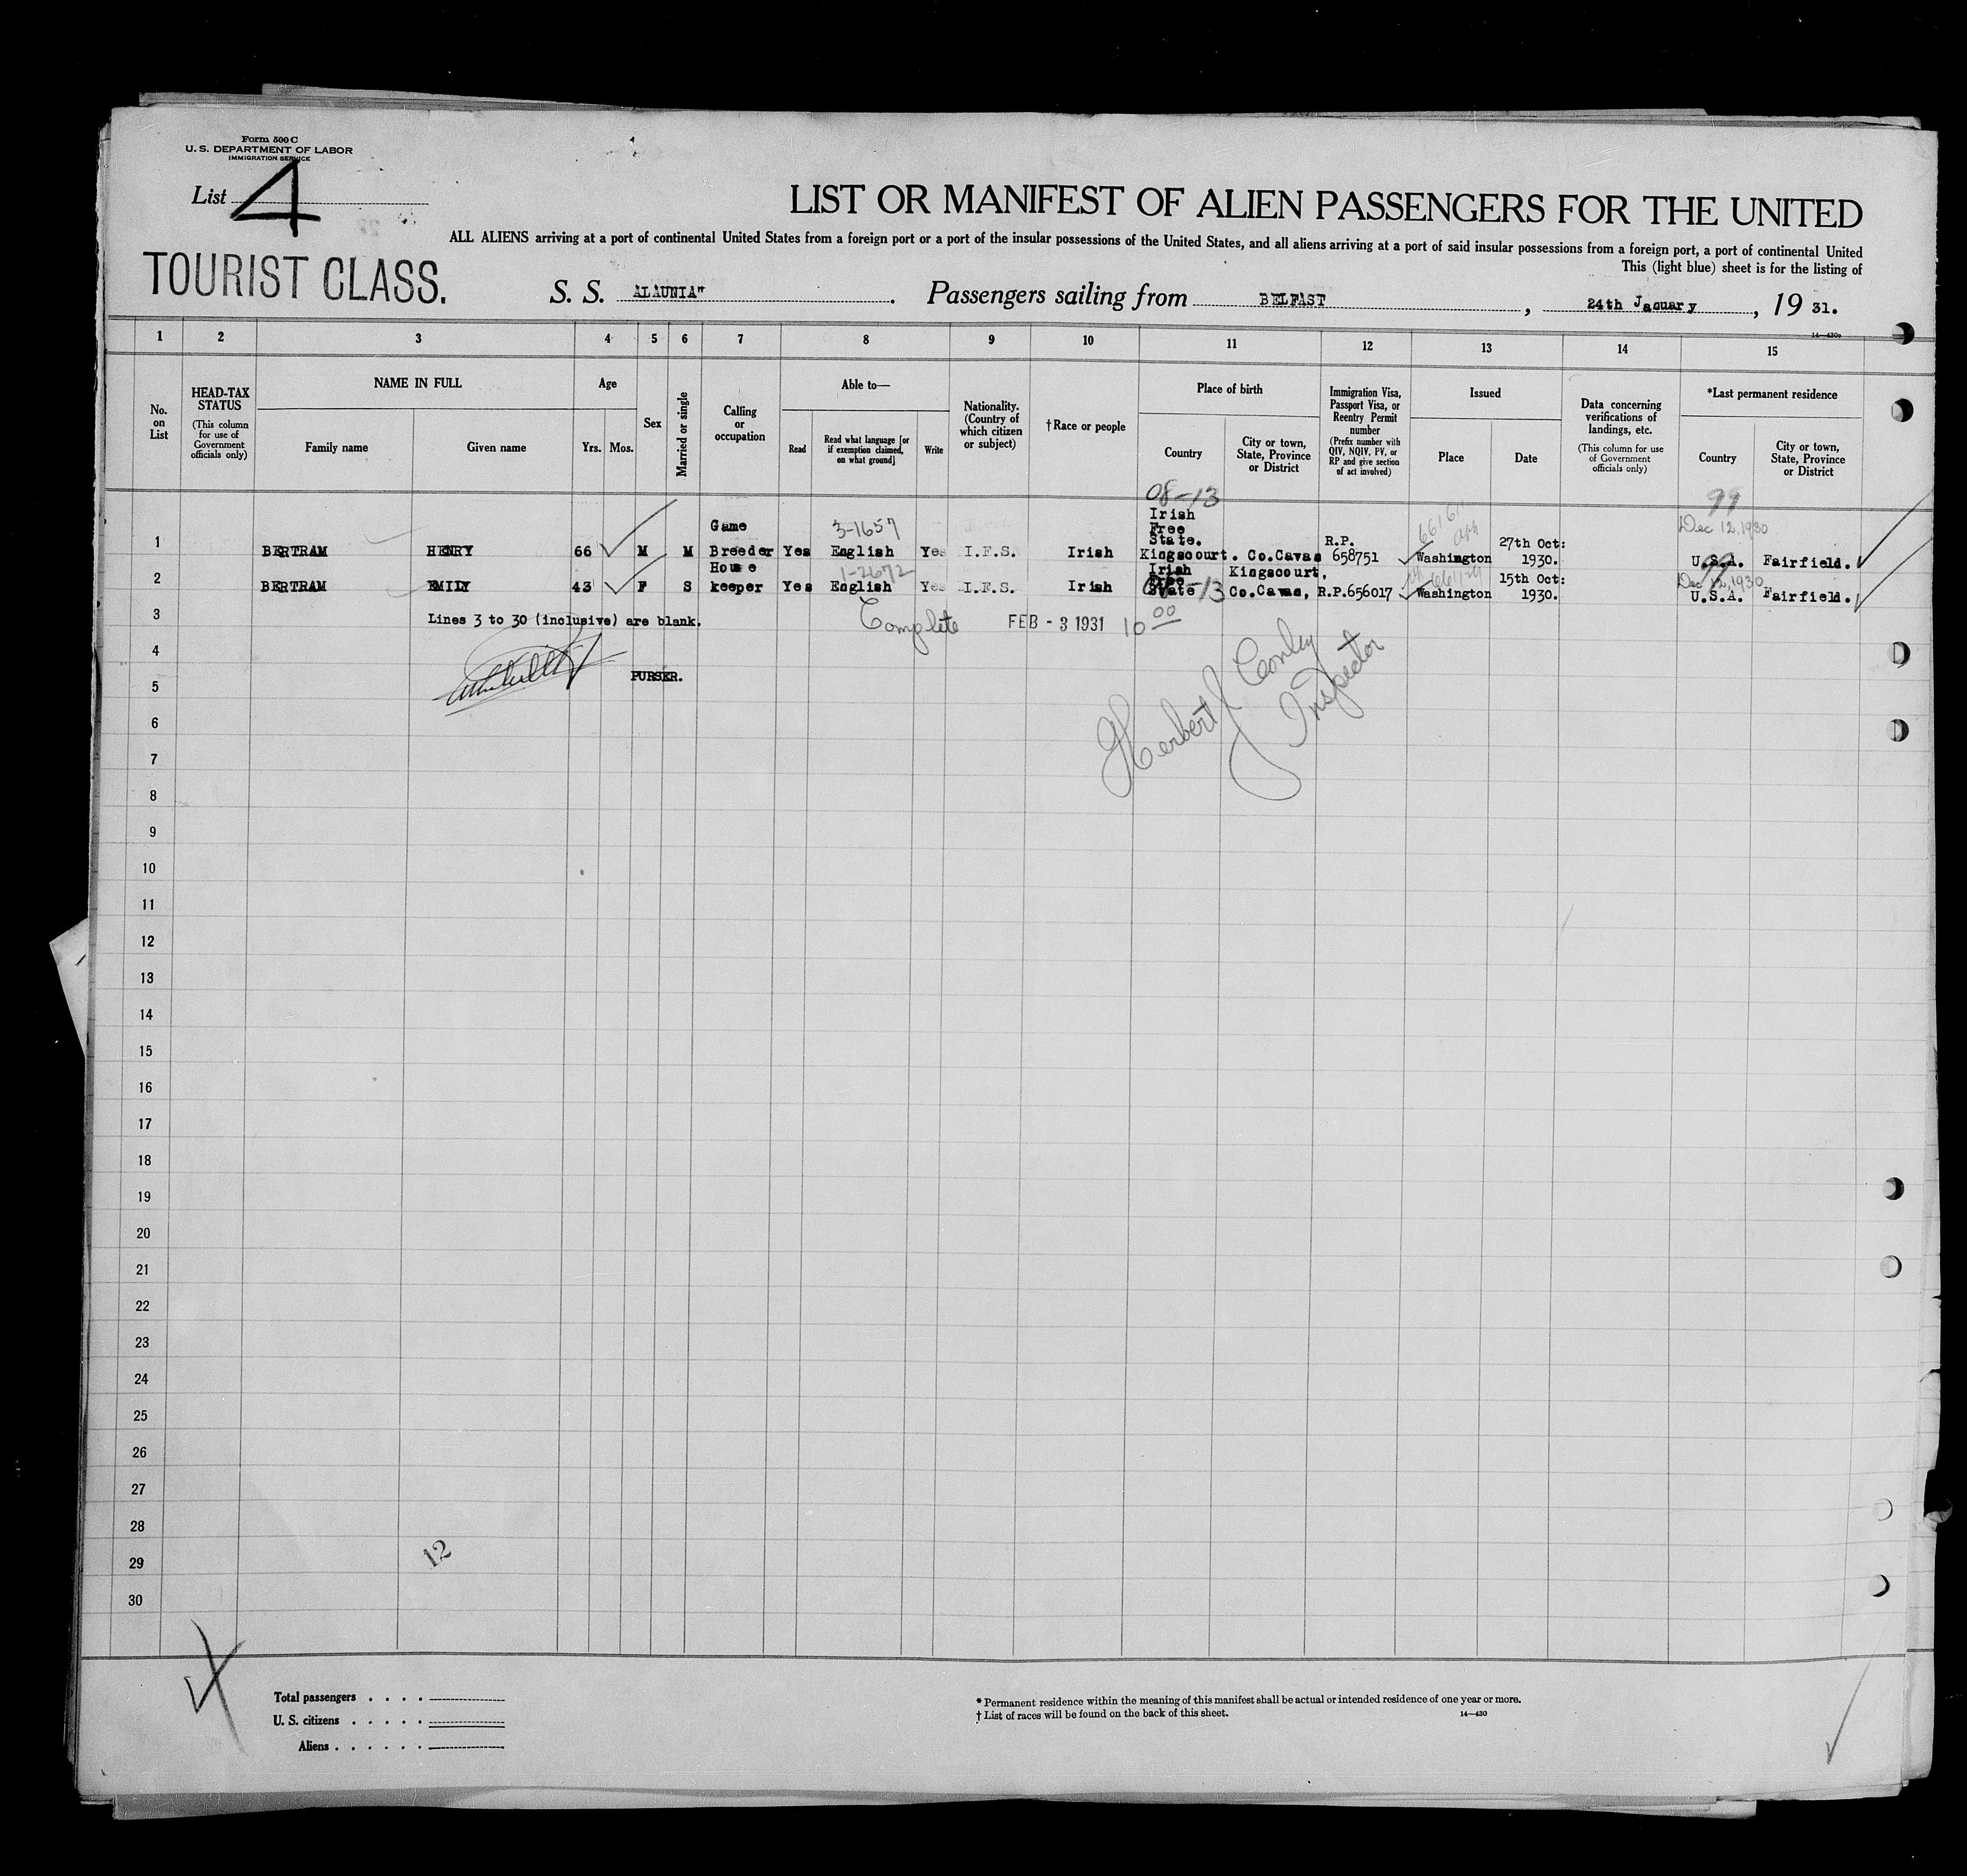 Form 500 C
U. S. DEPARTMENT OF LABOR
IMMIGRATION SERVICE
List 4
LIST OR MANIFEST OF ALIEN PASSENGERS FOR THE UNITED
ALL ALIENS arriving at a port of continental United States from a foreign port or a port of the insular possessions of the United States, and all aliens arriving at a port of said insular possessions from a foreign port, a port of continental United
This (light blue) sheet is for the listing of
TOURIST CLASS.
S. S. ALAUNIA" . Passengers sailing from BELFAST , 24th January , 19 31.
14—430c
1 2 3 4 5 6 7 8 9 10 11 12 13 14 15
No. on List
HEAD-TAX STATUS (This column for use of Government officials only)
NAME IN FULL
Family name
Given name
Age
Yrs. Mos.
Sex
Married or single
Calling or occupation
Able to—
Read
Read what language [or if exemption claimed, on what ground]
Write
Nationality. (Country of which citizen or subject)
† Race or people
Place of birth
Country
City or town, State, Province or District
Immigration Visa, Passport Visa, or Reentry Permit number (Prefix number with QIV, NQIV, PV, or RP and give section of act involved)
Issued
Place
Date
Data concerning verifications of landings, etc. (This column for use of Government officials only)
*Last permanent residence
Country
City or town, State, Province or District
08-13
99
Irish
Game 3-1657 Free Dec 12, 1930
State. R.P. 27th Oct:
1 BERTRAM HENRY 66 M M Breeder Yes English Yes I.F.S. Irish Kingscourt. Co.Cavan 658751 Washington 1930. U.S.A. Fairfield.
House 1-2672 Irish Kingscourt, 15th Oct: Dec 12, 1930
Free
2 BERTRAM EMILY 43 F S keeper Yes English Yes I.F.S. Irish State 13 Co.Cavan, R.P.656017 Washington 1930. U.S.A. Fairfield.
3 Lines 3 to 30 (inclusive) are blank. Complete FEB - 3 1931 10 00
4
PURSER.
5
Herbert J Conley
Inspector
6
7
8
9
10
11
12
13
14
15
16
17
18
19
20
21
22
23
24
25
26
27
28
29
12
30
Total passengers . . . .
U. S. citizens . . . . .
Aliens . . . . . .
* Permanent residence within the meaning of this manifest shall be actual or intended residence of one year or more.
† List of races will be found on the back of this sheet.
14—430